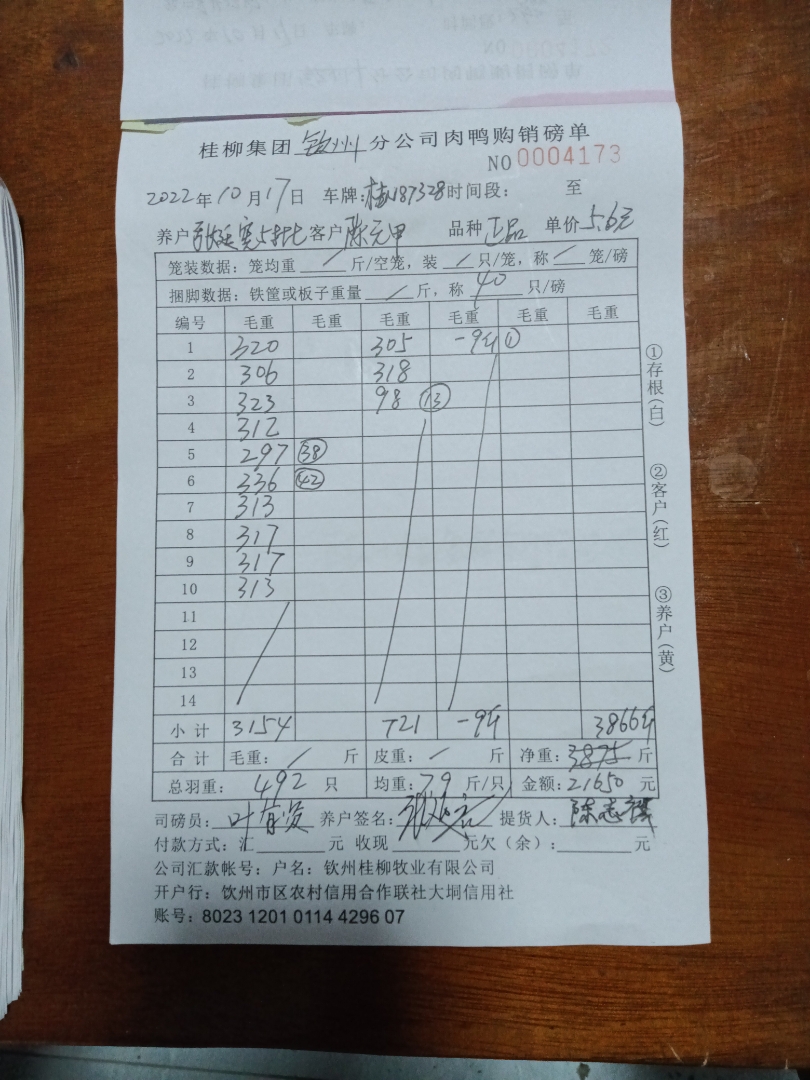 桂柳集团 钦州 分公司肉鸭购销磅单
NO 0004173
2022年10月17日 车牌:桂187328 时间段: 至
养户 客户 陈元甲 品种 正品 单价 5.6元
笼装数据:笼均重 / 斤/空笼,装 / 只/笼,称 / 笼/磅
捆脚数据:铁筐或板子重量 / 斤,称 40 只/磅
编号 毛重 毛重 毛重 毛重 毛重 毛重
1 320 305 -9斤 ①
2 306 318
3 323 98 ⑬
4 312
5 297 ㊳
6 336 ㊷
7 313
8 317
9 317
10 313
11
12
13
14
小计 3154 721 -9斤 3866斤
合计 毛重: / 斤 皮重: / 斤 净重:3875 斤
总羽重: 492 只 均重:7.9 斤/只 金额:21650 元
司磅员: 养户签名: 提货人:陈志
付款方式:汇 元 收现 元欠(余): 元
公司汇款帐号:户名:钦州桂柳牧业有限公司
开户行:钦州市区农村信用合作联社大垌信用社
账号:8023 1201 0114 4296 07
①存根(白)
②客户(红)
③养户(黄)